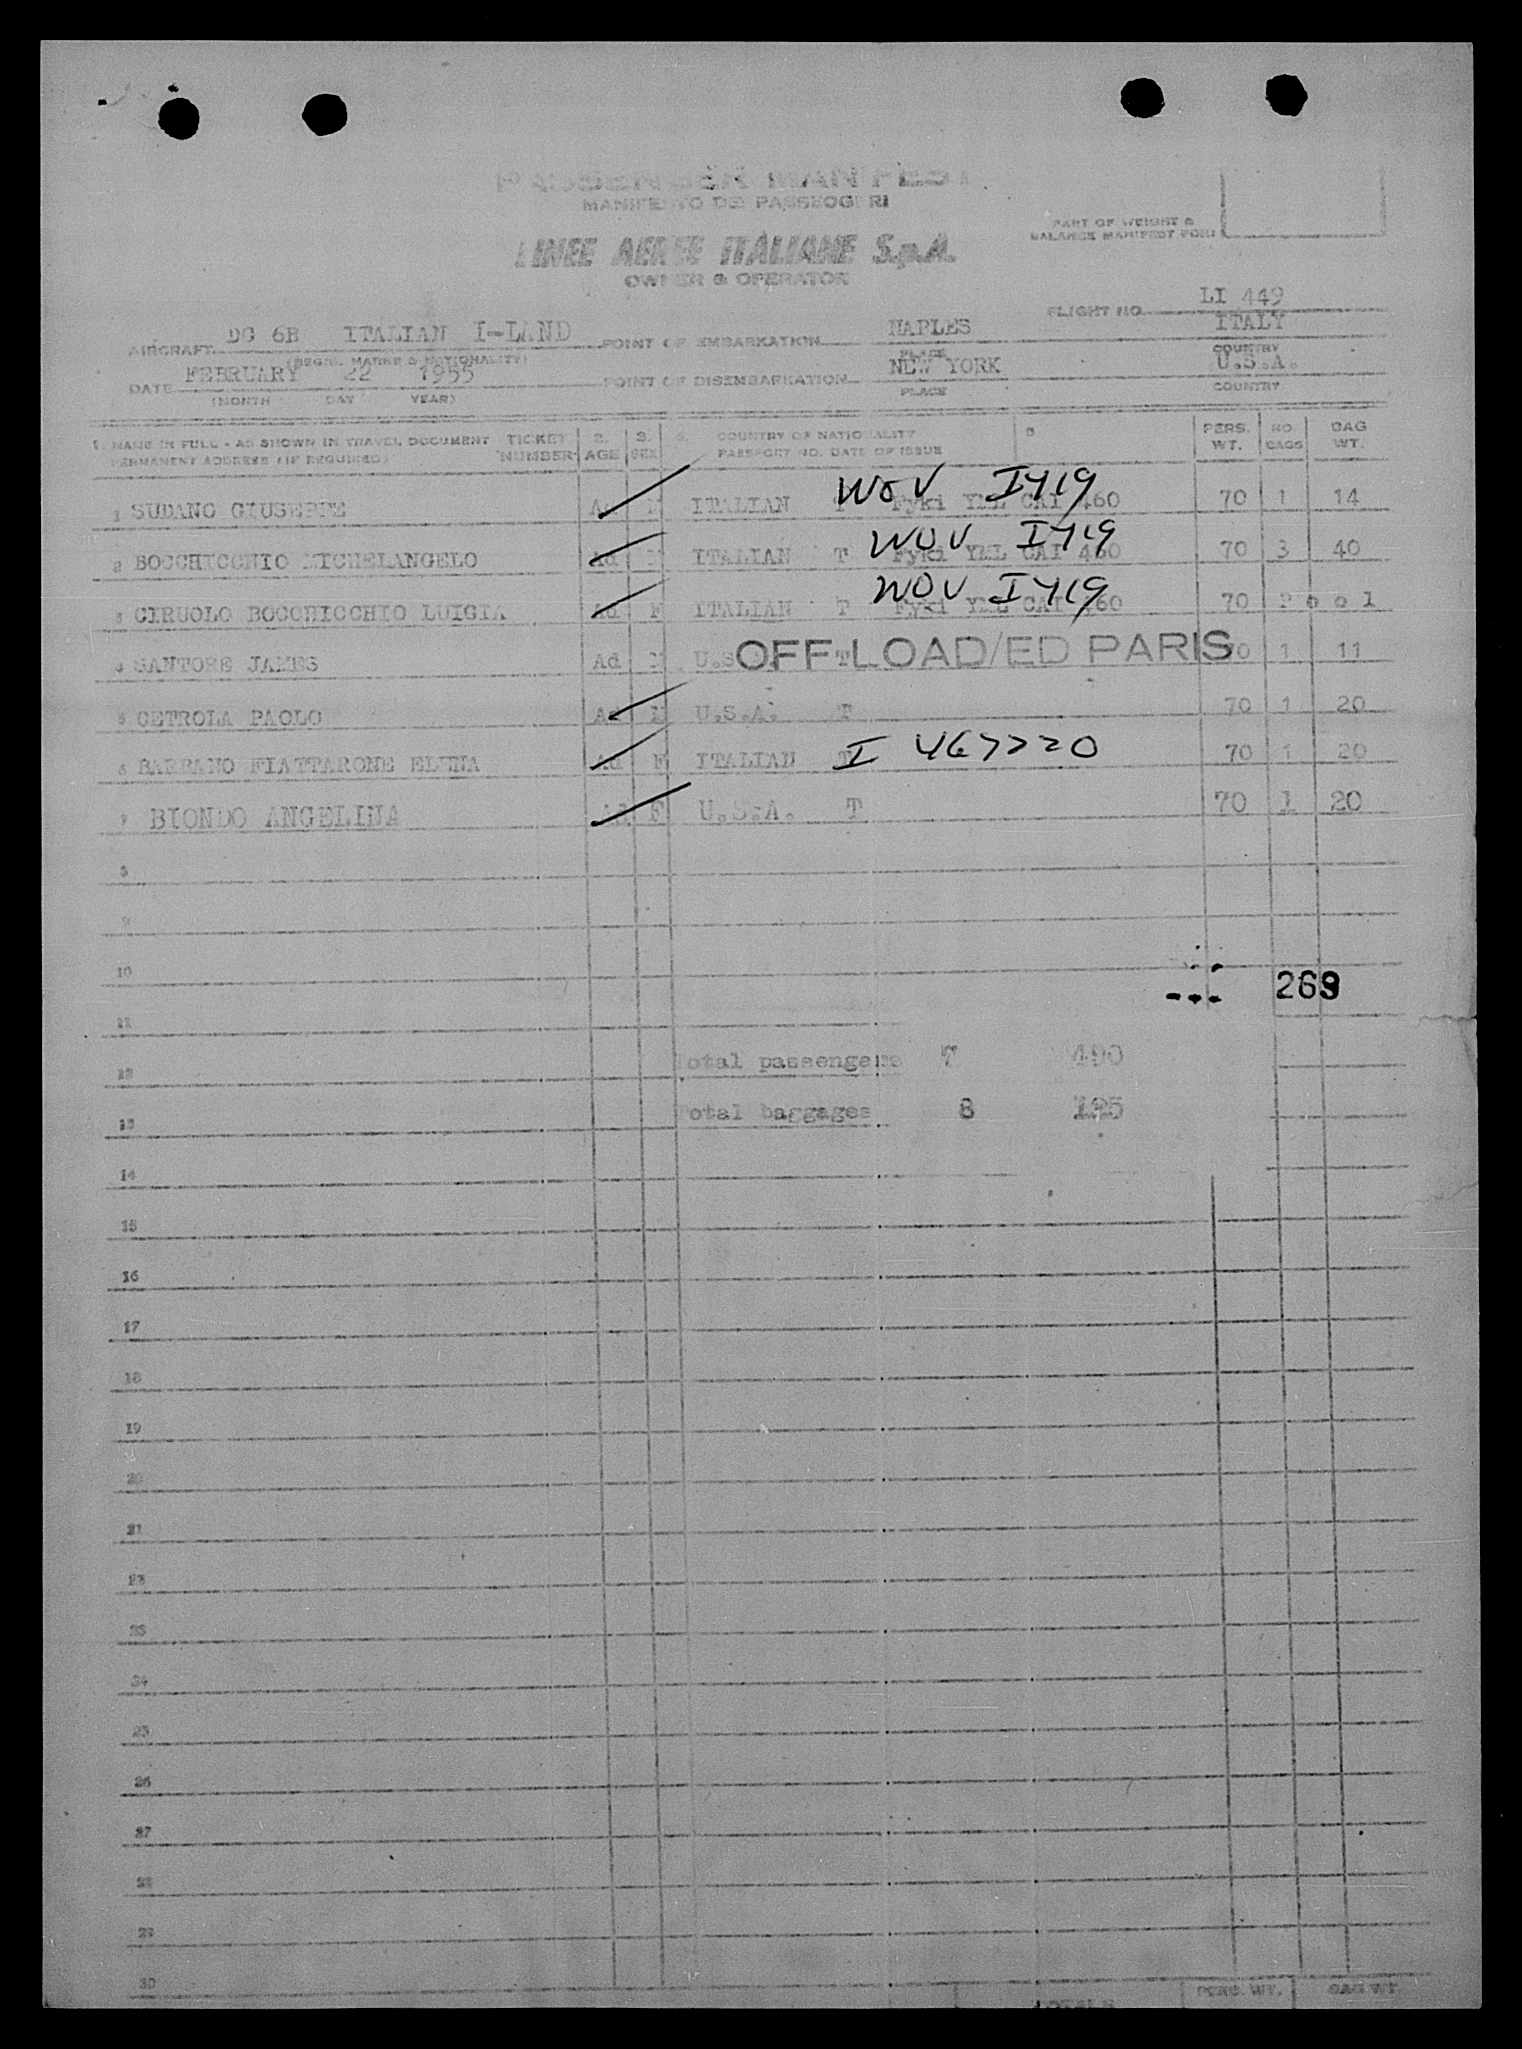 PASSENGER MANIFEST
MANIFESTO DEI PASSEGGERI
LINEE AEREE ITALIANE S.p.A.
OWNER & OPERATOR
PART OF WEIGHT &
BALANCE MANIFEST FORM
FLIGHT NO. LI 449
AIRCRAFT DC 6B ITALIAN I-LAND POINT OF EMBARKATION NAPLES ITALY
(REGIS. MARKS & NATIONALITY) PLACE COUNTRY
DATE FEBRUARY 22 1955 POINT OF DISEMBARKATION NEW YORK U.S.A.
(MONTH DAY YEAR) PLACE COUNTRY
1. NAME IN FULL - AS SHOWN IN TRAVEL DOCUMENT TICKET 2. 3. 4. COUNTRY OF NATIONALITY 5 PERS. NO. BAG
PERMANENT ADDRESS (IF REQUIRED) NUMBER AGE SEX PASSPORT NO. DATE OF ISSUE WT. BAGS WT.
WOV I419
1 SUDANO GIUSEPPE Ad M ITALIAN T Fyki YEL CAI 460 70 1 14
WOV I419
2 BOCCHICCHIO MICHELANGELO Ad M ITALIAN T Fyki YEL CAI 460 70 3 40
WOV I419
3 CIRUOLO BOCCHICCHIO LUIGIA Ad F ITALIAN T Fyki YEL CAI 460 70 P o o l
4 SANTORE JAMES Ad M U.S.A. T OFF-LOAD/ED PARIS 70 1 11
5 CETROLA PAOLO Ad M U.S.A. T 70 1 20
6 BARBANO FIATTARONE ELENA Ad F ITALIAN T I 467220 70 1 20
7 BIONDO ANGELINA Ad F U.S.A. T 70 1 20
8
9
10
269
11
12 Total passengers 7 490
13 Total baggages 8 125
14
15
16
17
18
19
20
21
22
23
24
25
26
27
28
29
30
TOTALS PERS. WT. BAG WT.